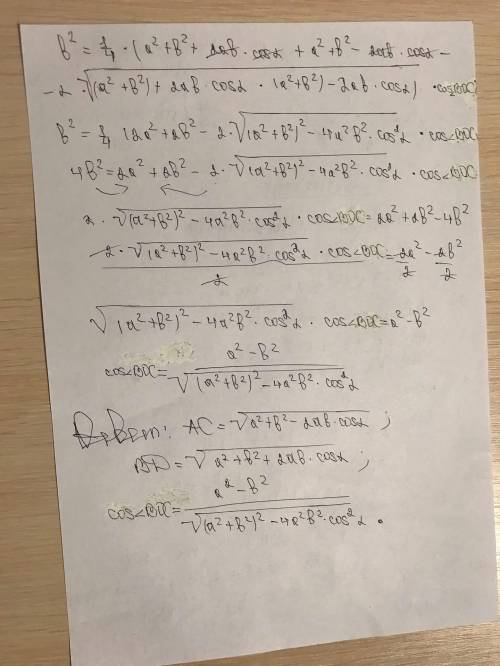 b² = 1/4 · (a² + b² + 2ab · cosα + a² + b² - 2ab · cosα -
- 2 · √((a² + b²) + 2ab · cosα · (a² + b²) - 2ab · cosα) · cos∠BOC)
b² = 1/4 (2a² + 2b² - 2 · √((a² + b²)² - 4a²b² · cos²α · cos∠BOC
4b² = 2a² + 2b² - 2 · √((a² + b²)² - 4a²b² · cos²α · cos∠BOC
2 · √((a² + b²)² - 4a²b² · cos²α · cos∠BOC = 2a² + 2b² - 4b²
2 · √((a² + b²)² - 4a²b² · cos²α / 2 · cos∠BOC = 2a²/2 - 2b²/2
√((a² + b²)² - 4a²b² · cos²α · cos∠BOC = a² - b²
cos∠BOC = a² - b² / √((a² + b²)² - 4a²b² · cos²α
Ответ: AC = √a² + b² - 2ab · cosα ;
BD = √a² + b² + 2ab · cosα ;
cos∠BOC = a² - b² / √(a² + b²)² - 4a²b² · cos²α .